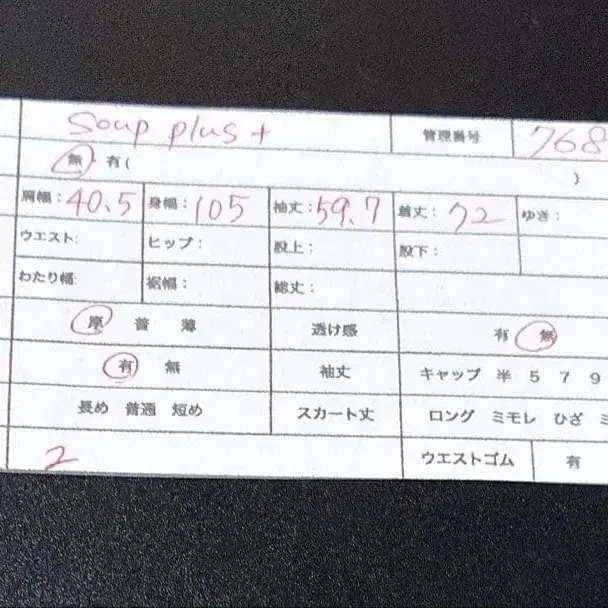 soup plus + 管理番号 768
無・有( )
肩幅:40.5 身幅:105 袖丈:59.7 着丈:72 ゆき:
ウエスト: ヒップ: 股上: 股下:
わたり幅: 裾幅: 総丈:
厚 普 薄 透け感 有 無
有 無 袖丈 キャップ 半 5 7 9
長め 普通 短め スカート丈 ロング ミモレ ひざ ミ
2 ウエストゴム 有